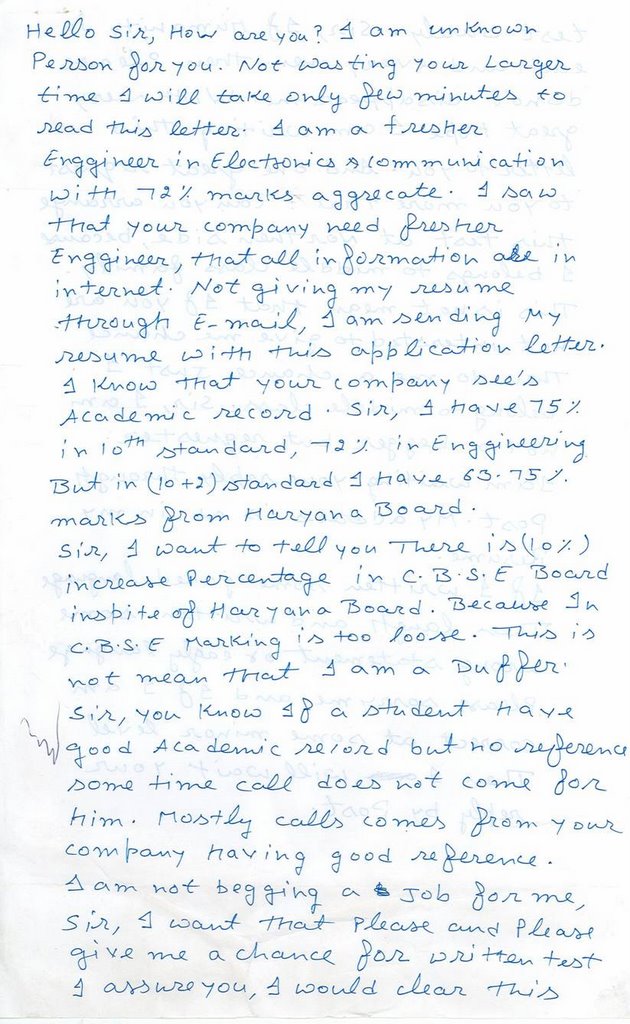 Hello Sir, How are you? I am unknown
Person for you. Not wasting your Larger
time I will take only few minutes to
read this letter. I am a fresher
Enggineer in Electronics & communication
with 72% marks aggrecate. I saw
that your company need fresher
Enggineer, that all information are in
internet. Not giving my resume
through E-mail, I am sending My
resume with this application letter.
I know that your company see's
Academic record. Sir, I Have 75%
in 10th standard, 72% in Enggineering
But in (10+2) standard I Have 63.75%
marks from Haryana Board.
Sir, I want to tell you There is (10%)
increase Percentage in C.B.S.E Board
inspite of Haryana Board. Because In
C.B.S.E Marking is too loose. This is
not mean that I am a Duffer.
Sir, you know If a student Have
good Academic record but no reference
some time call does not come for
Him. Mostly calls comes from your
company Having good reference.
I am not begging a Job for me,
Sir, I want that Please and Please
give me a chance for written test
I assure you, I would clear this